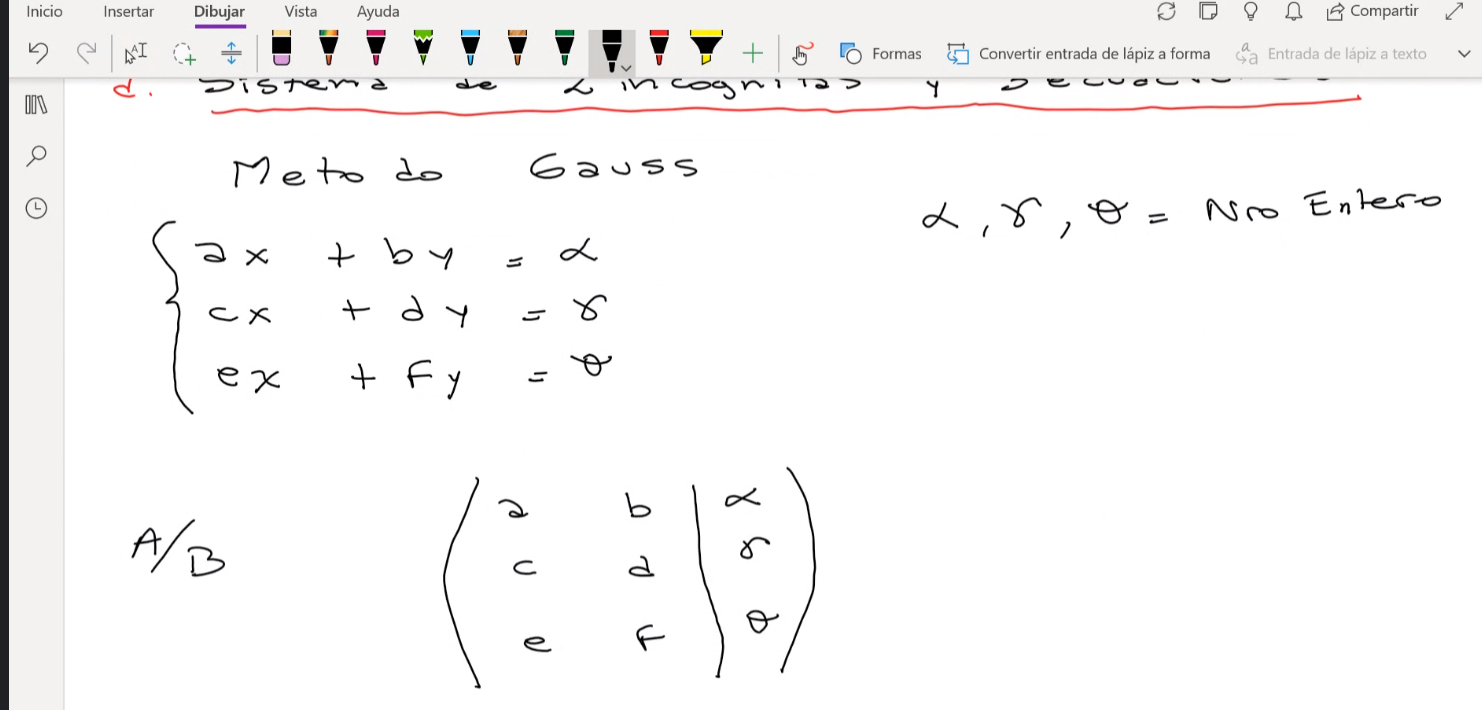 Inicio Insertar Dibujar Vista Ayuda Compartir
Formas Convertir entrada de lápiz a forma Entrada de lápiz a texto
d. Sistema de 2 incognitas y
Metodo Gauss
α, γ, θ = Nro Entero
ax + by = α
cx + dy = γ
ex + Fy = θ
A/B
a b | α
c d | γ
e F | θ